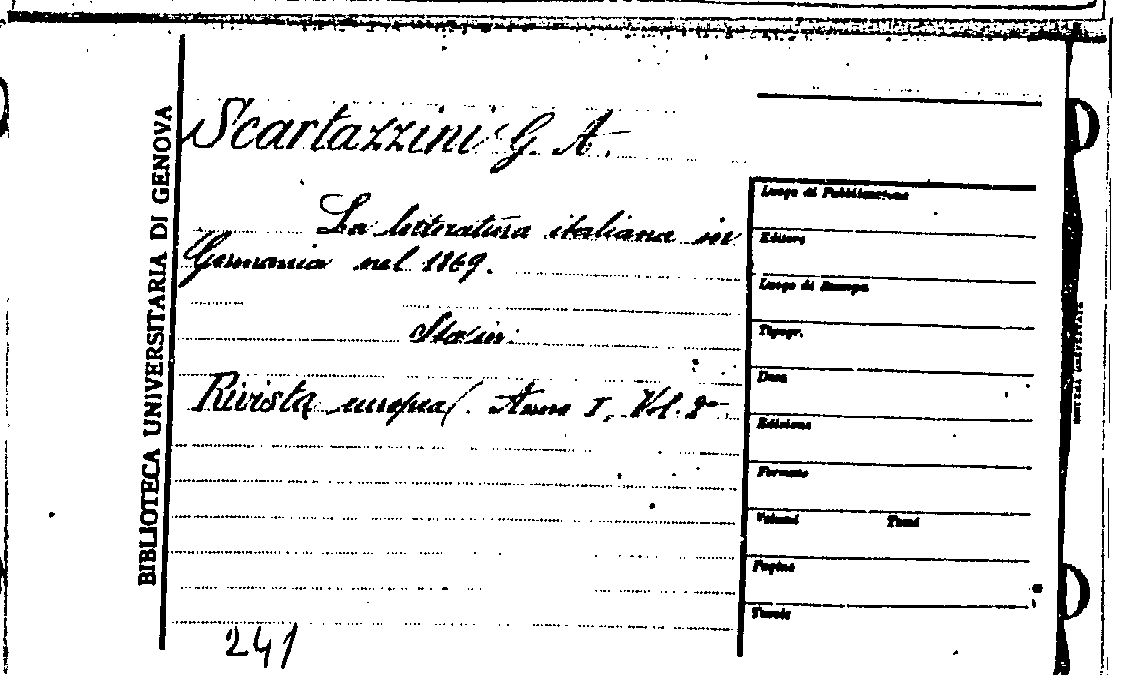 BIBLIOTECA UNIVERSITARIA DI GENOVA
Scartazzini G. A.
La letteratura italiana in
Germania nel 1869.
Sta in:
Rivista europea. Anno I, Vol. 2º
241
Luogo di Pubblicazione
Editore
Luogo di Stampa
Tipogr.
Data
Edizione
Formato
Volumi Tomi
Pagine
Tavole